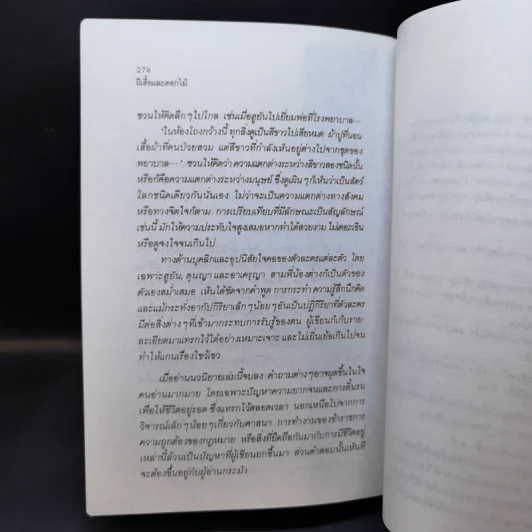 276
ผีเสื้อและดอกไม้
ชวนให้คิดลึก ๆ ไปไกล เช่นเมื่อฮูยันไปเยี่ยมพ่อที่โรงพยาบาล—
'ในห้องโถงกว้างนี้ ทุกสิ่งดูเป็นสีขาวไปเสียหมด ผ้าปูที่นอน
เสื้อผ้าที่คนป่วยสวม แต่สีขาวที่กำลังเห็นอยู่ต่างไปจากชุดของ
พยาบาล—' ชวนให้คิดว่าความแตกต่างระหว่างสีขาวสองชนิดนั้น
หรือก็คือความแตกต่างระหว่างมนุษย์ ซึ่งดูเผิน ๆ ก็เห็นว่าเป็นสัตว์
โลกชนิดเดียวกันนั่นเอง ไม่ว่าจะเป็นความแตกต่างทางสังคม
หรือทางจิตใจก็ตาม การเปรียบเทียบที่มีลักษณะเป็นสัญลักษณ์
เช่นนี้ มักให้ความประทับใจสูงเสมอหากทำได้สวยงาม ไม่เคอะเขิน
หรือดูจงใจจนเกินไป
ทางด้านบุคลิกและอุปนิสัยใจคอของตัวละครแต่ละตัว โดย
เฉพาะฮูยัน, ดุนญา และอาเครุญา สามพี่น้องต่างก็เป็นตัวของ
ตัวเองสม่ำเสมอ เห็นได้ชัดจากคำพูด การกระทำ ความรู้สึกนึกคิด
และแม้กระทั่งอากัปกิริยาเล็ก ๆ น้อย ๆ อันเป็นปฏิกิริยาที่ตัวละคร
มีต่อสิ่งต่าง ๆ ที่เข้ามากระทบการรับรู้ของตน ผู้เขียนก็เก็บราย-
ละเอียดมาแทรกไว้ได้อย่างเหมาะเจาะ และไม่เยิ่นเย้อเกินไปจน
ทำให้แกนเรื่องไขว้เขว
เมื่ออ่านนวนิยายเล่มนี้จบลง คำถามต่าง ๆ อาจผุดขึ้นในใจ
คนอ่านมากมาย โดยเฉพาะปัญหาความยากจนและการดิ้นรน
เพื่อให้ชีวิตอยู่รอด ซึ่งแทรกไว้ตลอดเวลา นอกเหนือไปจากการ
วิจารณ์เล็ก ๆ น้อย ๆ เกี่ยวกับศาสนา การทำงานของข้าราชการ
ความถูกต้องของกฎหมาย หรือสิ่งที่ยึดถือกันมากับการมีชีวิตอยู่
เหล่านี้ล้วนเป็นปัญหาที่ผู้เขียนยกขึ้นมา ส่วนคำตอบนั้นเห็นที
จะต้องขึ้นอยู่กับผู้อ่านกระมัง